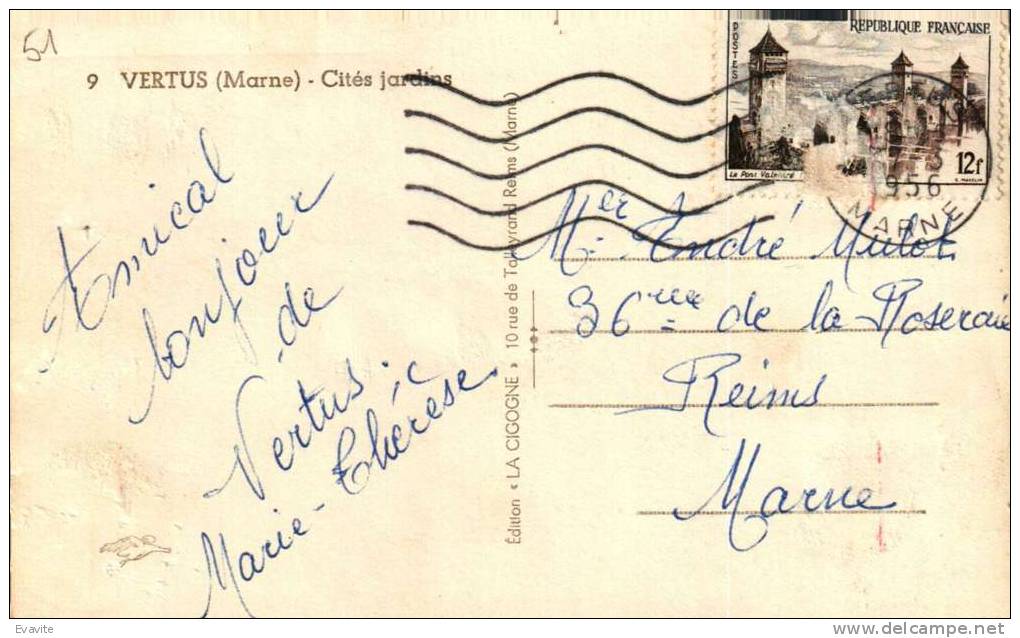 51
9 VERTUS (Marne) - Cités jardins
Amical
bonjour
de
Vertus.
Marie-Thérèse
Édition « LA CIGOGNE » 10 rue de Talleyrand Reims (Marne)
POSTES
REPUBLIQUE FRANÇAISE
Le Pont Valentré
12f
1956
MARNE
Mr André Mulot
36 rue de la Roseraie
Reims
Marne
Evavite
delcampe.net